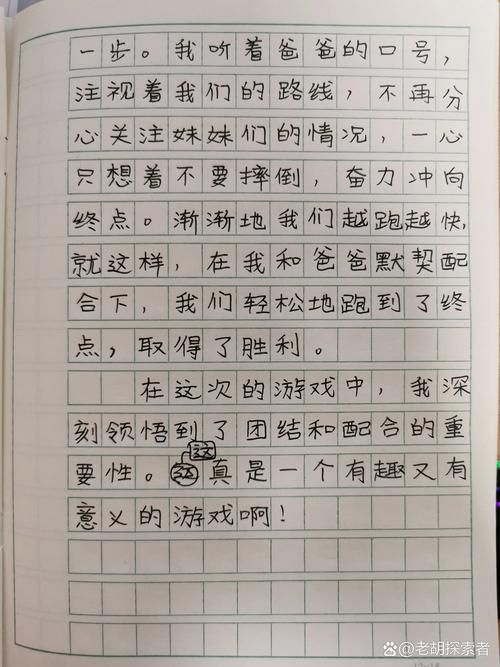 一步。我听着爸爸的口号，
注视着我们的路线，不再分
心关注妹妹们的情况，一心
只想着不要摔倒，奋力冲向
终点。渐渐地我们越跑越快，
就这样，在我和爸爸默契配
合下，我们轻松地跑到了终
点，取得了胜利。
在这次的游戏中，我深
刻领悟到了团结和配合的重
要性。这真是一个有趣又有
意义的游戏啊！
@老胡探索者